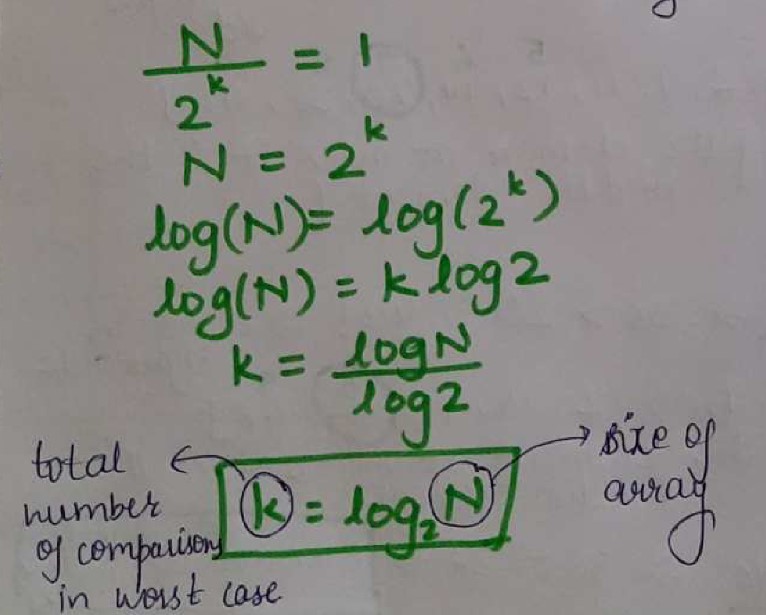 N/2^k = 1
N = 2^k
log(N) = log(2^k)
log(N) = k log2
k = logN/log2
k = log₂N
total
number
of comparisons
in worst case
size of
array